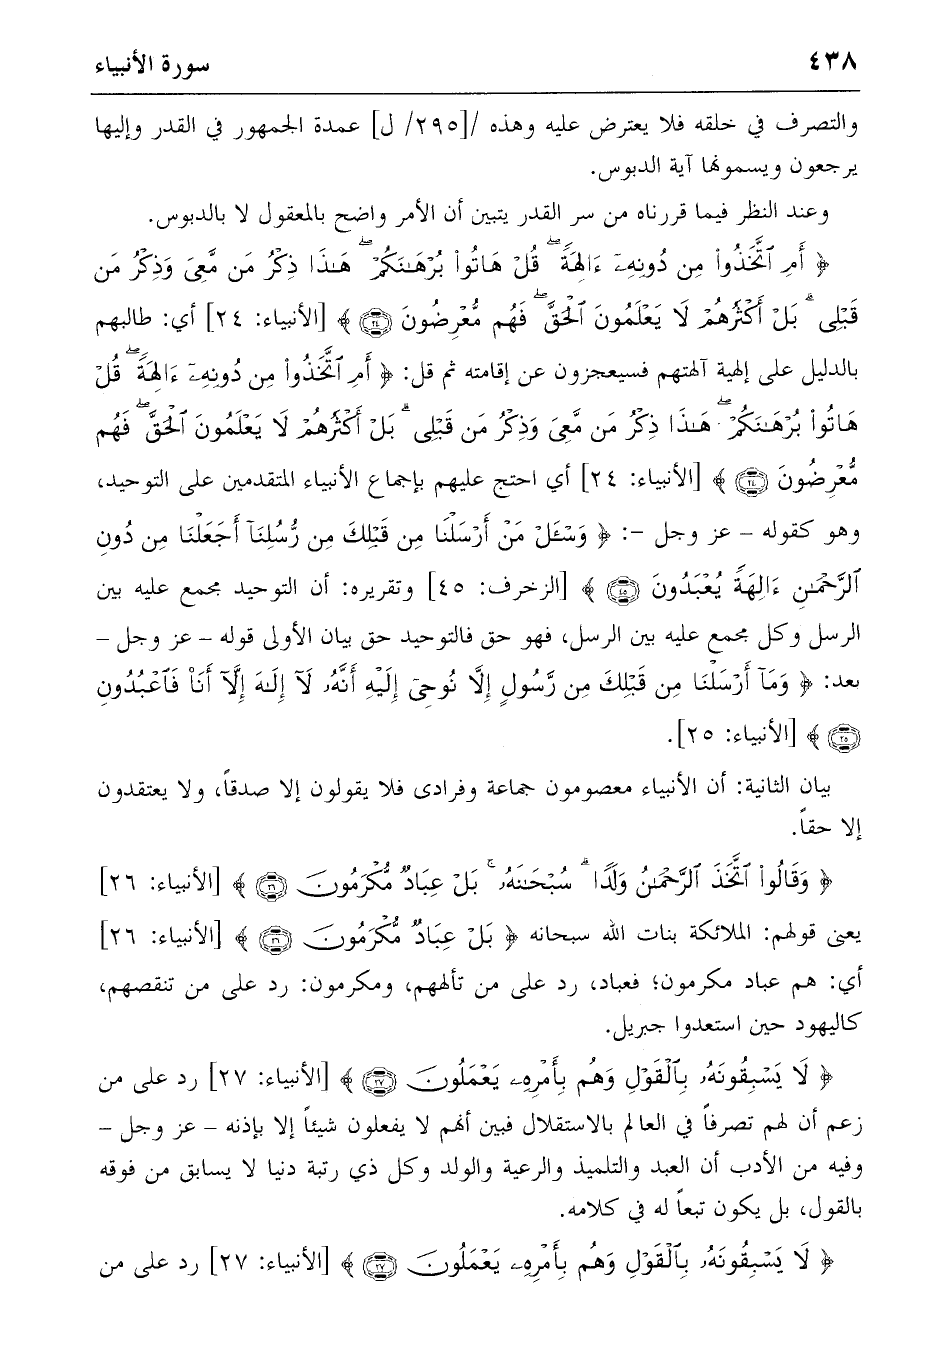 ٤٣٨ سورة الأنبياء
والتصرف في خلقه فلا يعترض عليه وهذه /[٢٩٥/ ل] عمدة الجمهور في القدر وإليها
يرجعون ويسمونها آية الدبوس.
وعند النظر فيما قررناه من سر القدر يتبين أن الأمر واضح بالمعقول لا بالدبوس.
﴿ أَمِ ٱتَّخَذُواْ مِن دُونِهِۦٓ ءَالِهَةًۖ قُلۡ هَاتُواْ بُرۡهَٰنَكُمۡۖ هَٰذَا ذِكۡرُ مَن مَّعِيَ وَذِكۡرُ مَن
قَبۡلِيۚ بَلۡ أَكۡثَرُهُمۡ لَا يَعۡلَمُونَ ٱلۡحَقَّۖ فَهُم مُّعۡرِضُونَ ٢٤ ﴾ [الأنبياء: ٢٤] أي: طالبهم
بالدليل على إلهية آلهتهم فسيعجزون عن إقامته ثم قل: ﴿ أَمِ ٱتَّخَذُواْ مِن دُونِهِۦٓ ءَالِهَةًۖ قُلۡ
هَاتُواْ بُرۡهَٰنَكُمۡۖ هَٰذَا ذِكۡرُ مَن مَّعِيَ وَذِكۡرُ مَن قَبۡلِيۚ بَلۡ أَكۡثَرُهُمۡ لَا يَعۡلَمُونَ ٱلۡحَقَّۖ فَهُم
مُّعۡرِضُونَ ٢٤ ﴾ [الأنبياء: ٢٤] أي احتج عليهم بإجماع الأنبياء المتقدمين على التوحيد،
وهو كقوله – عز وجل –: ﴿ وَسۡـَٔلۡ مَنۡ أَرۡسَلۡنَا مِن قَبۡلِكَ مِن رُّسُلِنَآ أَجَعَلۡنَا مِن دُونِ
ٱلرَّحۡمَٰنِ ءَالِهَةٗ يُعۡبَدُونَ ٤٥ ﴾ [الزخرف: ٤٥] وتقريره: أن التوحيد مجمع عليه بين
الرسل وكل مجمع عليه بين الرسل، فهو حق فالتوحيد حق بيان الأولى قوله – عز وجل –
بعد: ﴿ وَمَآ أَرۡسَلۡنَا مِن قَبۡلِكَ مِن رَّسُولٍ إِلَّا نُوحِيٓ إِلَيۡهِ أَنَّهُۥ لَآ إِلَٰهَ إِلَّآ أَنَا۠ فَٱعۡبُدُونِ
٢٥ ﴾ [الأنبياء: ٢٥].
بيان الثانية: أن الأنبياء معصومون جماعة وفرادى فلا يقولون إلا صدقاً، ولا يعتقدون
إلا حقاً.
﴿ وَقَالُواْ ٱتَّخَذَ ٱلرَّحۡمَٰنُ وَلَدٗاۗ سُبۡحَٰنَهُۥۚ بَلۡ عِبَادٞ مُّكۡرَمُونَ ٢٦ ﴾ [الأنبياء: ٢٦]
يعني قولهم: الملائكة بنات الله سبحانه ﴿ بَلۡ عِبَادٞ مُّكۡرَمُونَ ٢٦ ﴾ [الأنبياء: ٢٦]
أي: هم عباد مكرمون؛ فعباد، رد على من تألههم، ومكرمون: رد على من تنقصهم،
كاليهود حين استعدوا جبريل.
﴿ لَا يَسۡبِقُونَهُۥ بِٱلۡقَوۡلِ وَهُم بِأَمۡرِهِۦ يَعۡمَلُونَ ٢٧ ﴾ [الأنبياء: ٢٧] رد على من
زعم أن لهم تصرفاً في العالم بالاستقلال فبين أنهم لا يفعلون شيئاً إلا بإذنه – عز وجل –
وفيه من الأدب أن العبد والتلميذ والرعية والولد وكل ذي رتبة دنيا لا يسابق من فوقه
بالقول، بل يكون تبعاً له في كلامه.
﴿ لَا يَسۡبِقُونَهُۥ بِٱلۡقَوۡلِ وَهُم بِأَمۡرِهِۦ يَعۡمَلُونَ ٢٧ ﴾ [الأنبياء: ٢٧] رد على من